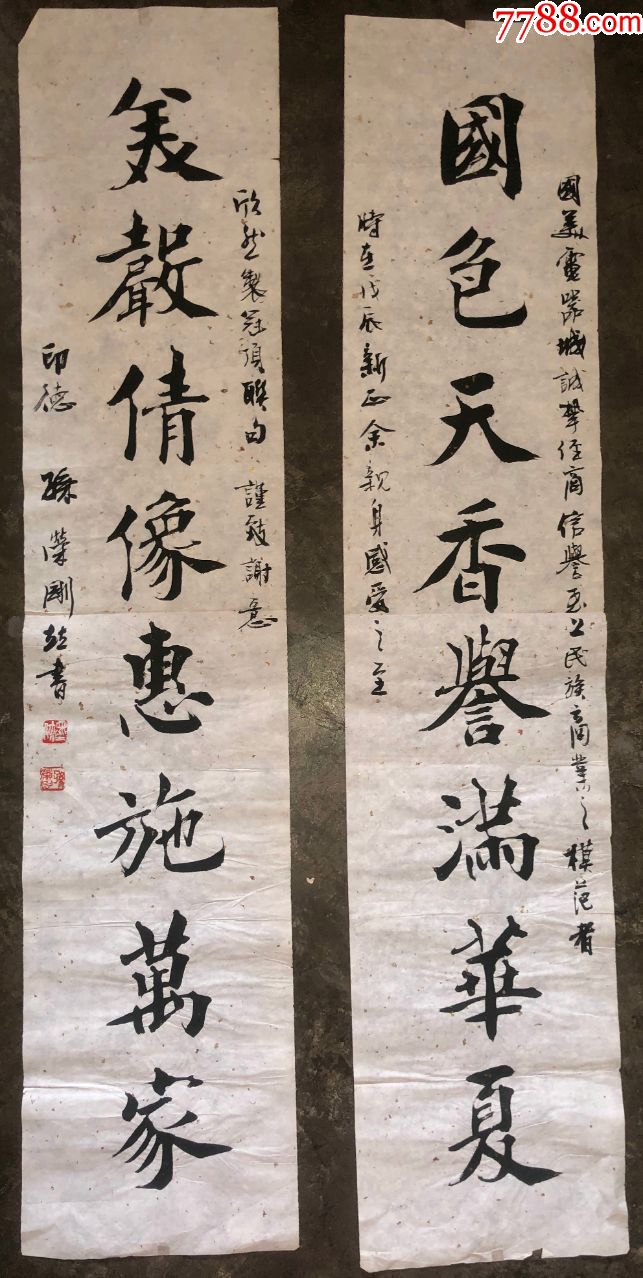 7788.com
國美電器城誠摯經商信譽至上民族商業之模范者
國色天香譽滿華夏
時在戊辰新正余親身感受之至
欣然製冠頂聯句 謹致謝意
美聲倩像惠施萬家
印德 孫榮剛 書